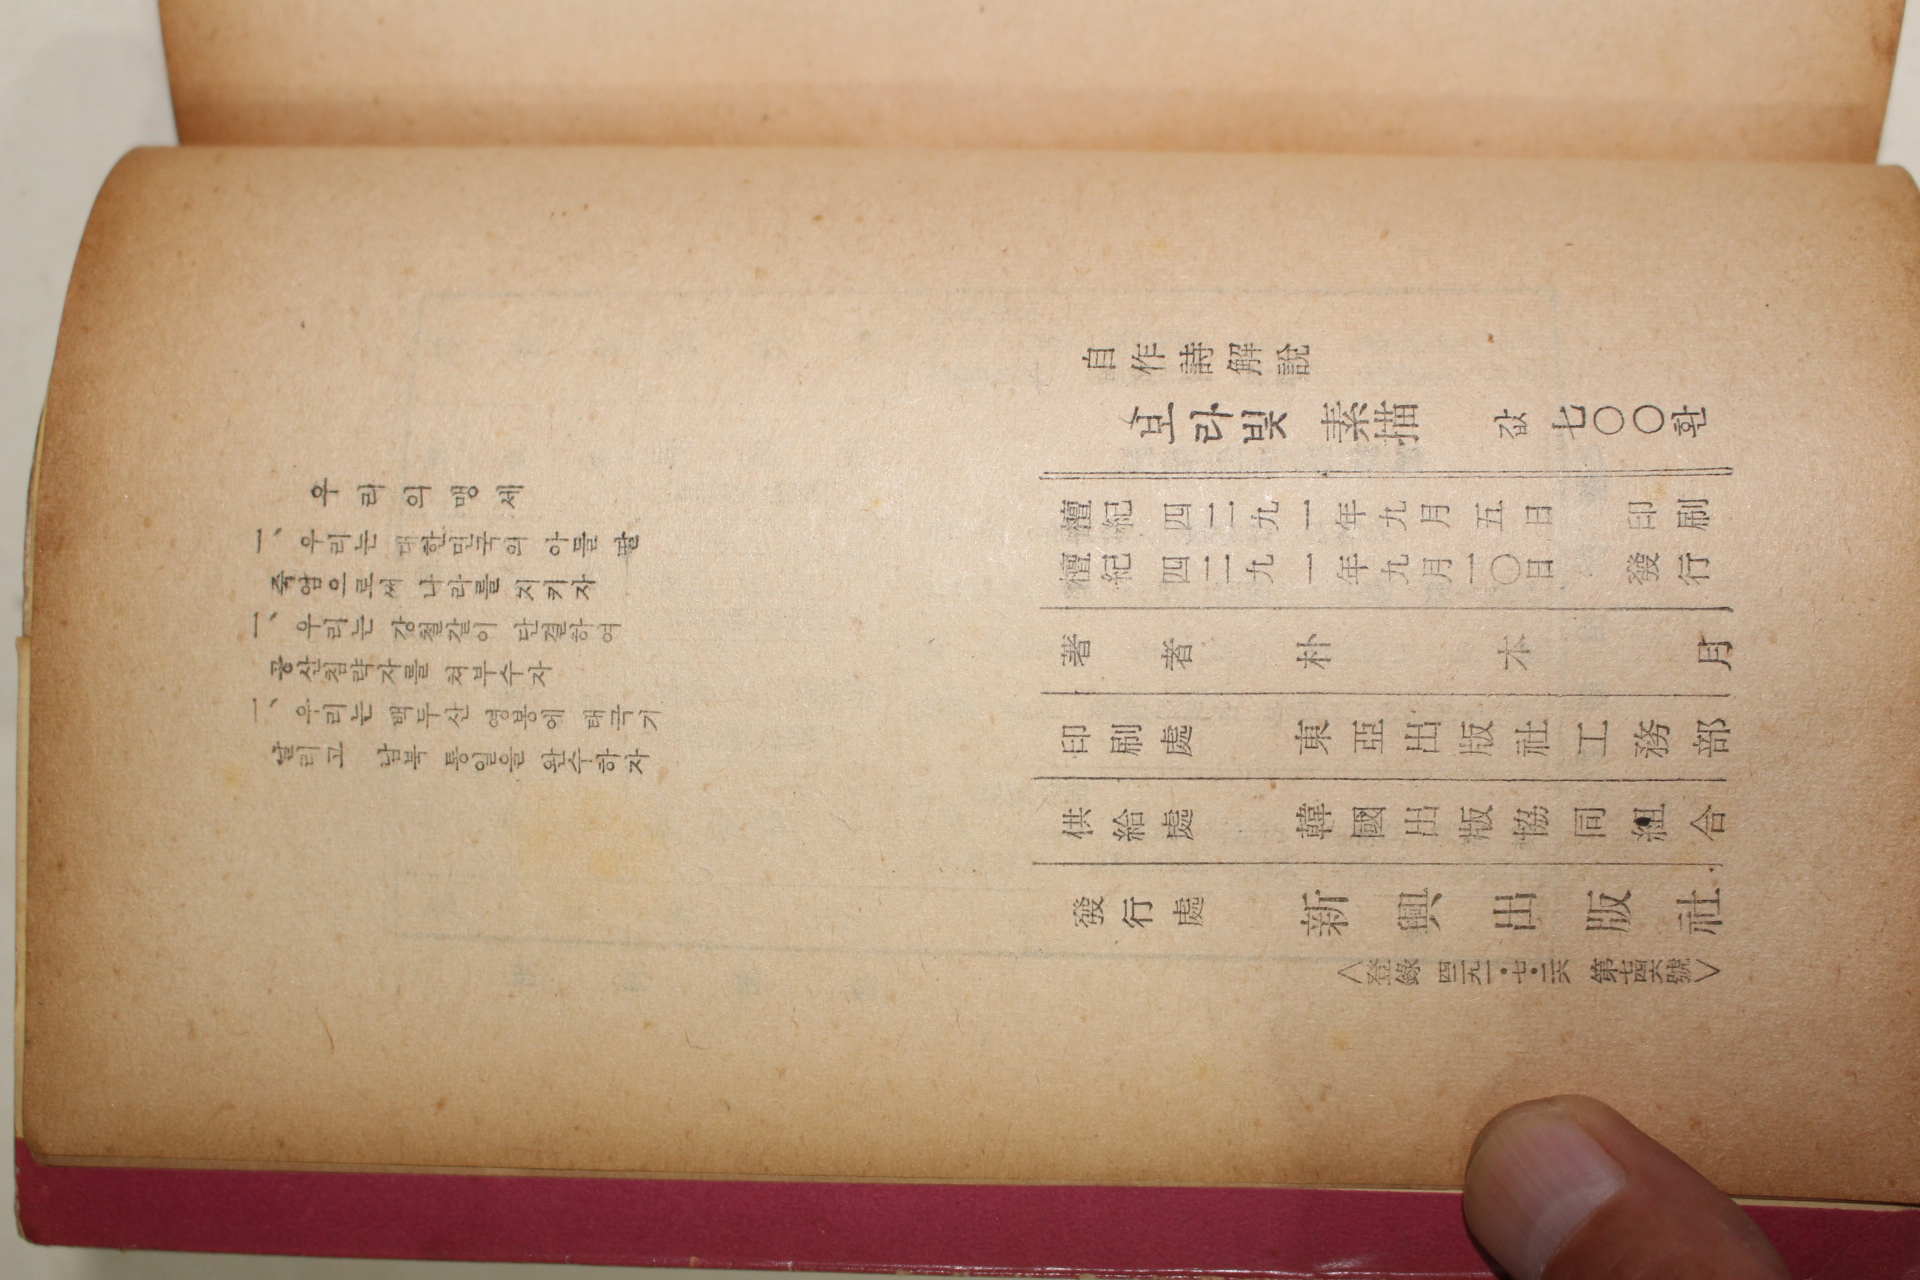 우리의 맹세
一、우리는 대한민국의 아들 딸
죽엄으로써 나라를 지키자
一、우리는 강철같이 단결하여
공산침략자를 쳐부수자
一、우리는 백두산 영봉에 태극기
날리고 남북 통일을 완수하자
自作詩解說
보라빛 素描 값 七〇〇환
檀紀 四二九一年九月五日 印刷
檀紀 四二九一年九月一〇日 發行
著者 朴木月
印刷處 東亞出版社工務部
供給處 韓國出版協同組合
發行處 新興出版社
<登錄 四二九一・七・二六 第七四六號>